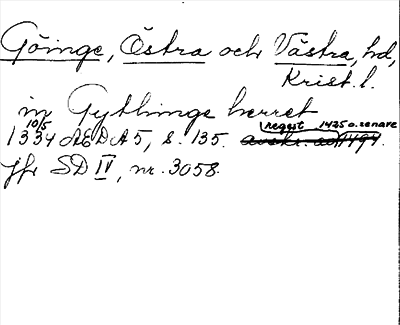 Göinge, Östra och Västra, hd,
Krist. l.
in Gythinge herret
10/5 regest 1425 o. senare
1334 ÆDA 5, s. 135. avskr. av 1494.
jfr SD IV, nr. 3058.